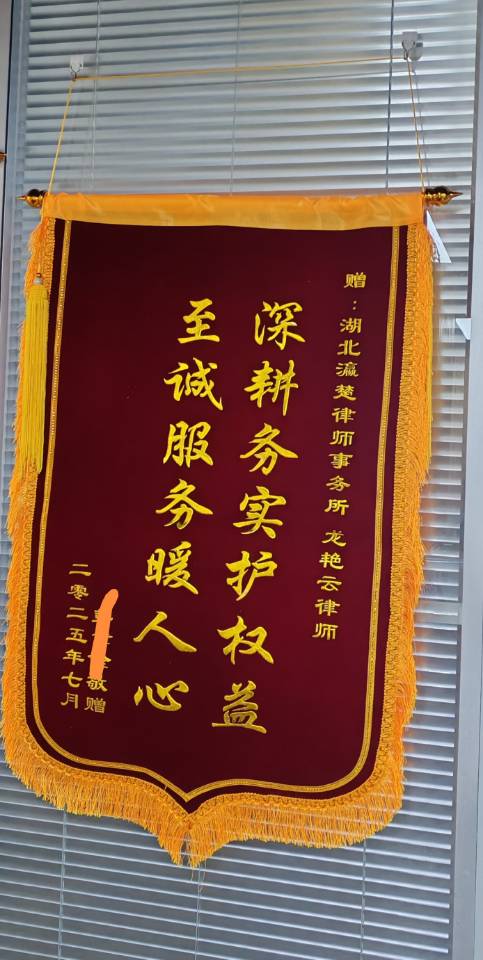 赠：湖北瀛楚律师事务所 龙艳云律师
深耕务实护权益
至诚服务暖人心
敬赠
二零二五年七月